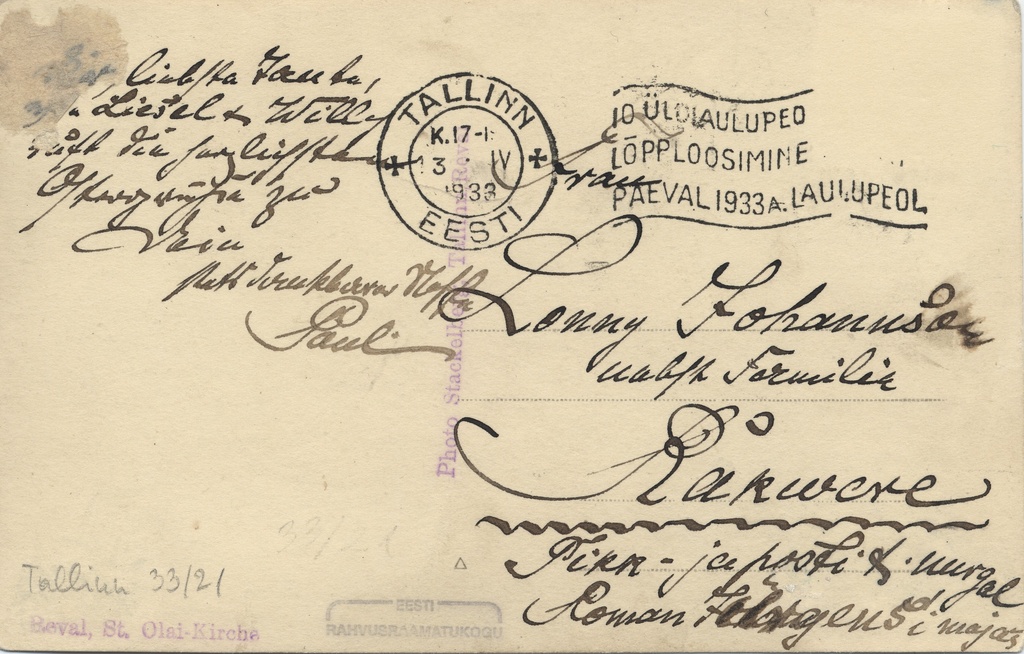 liebste Tante,
Liesel & Willy
ruft die herzlichsten
Ostergrüße zu
Dein
stets dankbarer Neffe
Paul
TALLINN
K.17-1
3 IV
1933
EESTI
10 ÜLDLAULUPEO
LÕPPLOOSIMINE
PÄEVAL 1933 A. LAULUPEOL
Frau
Lonny Johannson
nebst Familie
Rakwere
Pikk - ja posti t. nurgal
Roman majas
Photo Stackelberg Tallinn-Reval
Tallinn 33/21
Reval, St. Olai-Kirche
EESTI
RAHVUSRAAMATUKOGU